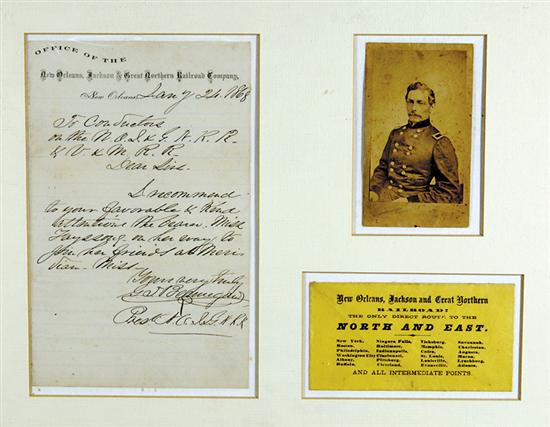 OFFICE OF THE
New Orleans, Jackson & Great Northern Railroad Company,
New Orleans, Jany 24 1868
To Conductors
on the N O J & G. N. R. R.
& V & M. R. R.
Dear Sirs.
I recommend
to your favorable & kind
attentions the bearer Miss
on her way to
join her friends at Meri
dian. Miss
Yours very truly
G T Beauregard
Prest N. O. J. G. N. R. R.
New Orleans, Jackson and Great Northern
RAILROAD!
THE ONLY DIRECT ROUTE TO THE
NORTH AND EAST.
New York, Niagara Falls, Vicksburg, Savannah,
Boston, Baltimore, Memphis, Charleston,
Philadelphia, Indianapolis, Cairo, Augusta,
Washington City Cincinnati, St. Louis, Macon,
Albany, Pittsburg, Louisville, Lynchburg,
Buffalo, Cleveland, Evansville, Atlanta,
AND ALL INTERMEDIATE POINTS.